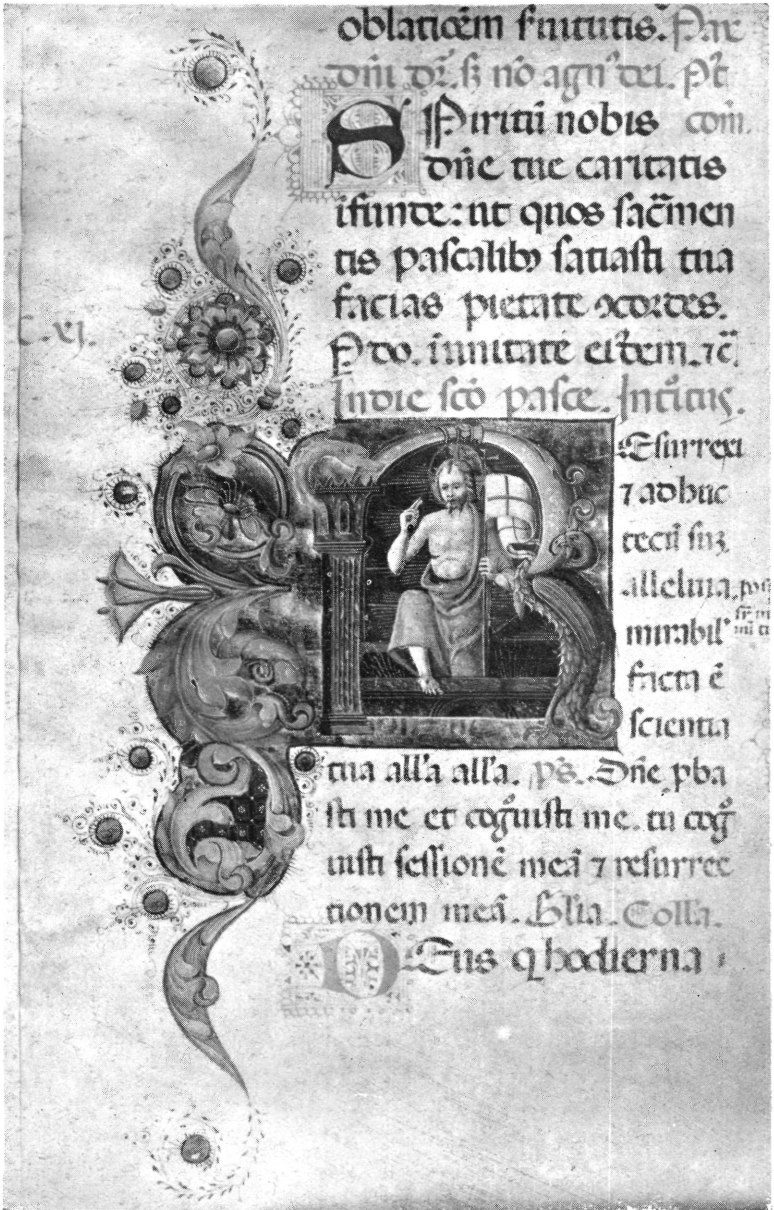 oblatiõem finitutis. Pax
dñi dr̃. ß nõ agn⁹ dei. Pt̃
SPiritũ nobis com̃.
dñe tue caritatis
ifunde: ut quos sac̃men
tis pascalib⁹ satiasti tua
facias pietate ɔcordes.
P do. ĩ unitate eiʼdem. ⁊c̃
In die sc̃o pasce. Introitus.
C. xj.
REsurrexi
⁊ adhuc
tecũ suʒ
alleluia. pos
mirabil'
facta ẽ
scientia
tua all'a all'a. ps̃. Dñe pba
sti me et cog̃uisti me. tu cog̃
uisti sessionẽ meã ⁊ resurrec
tionem meã. Gl̃ia. Coll'a.
DEus q̃ hodierna